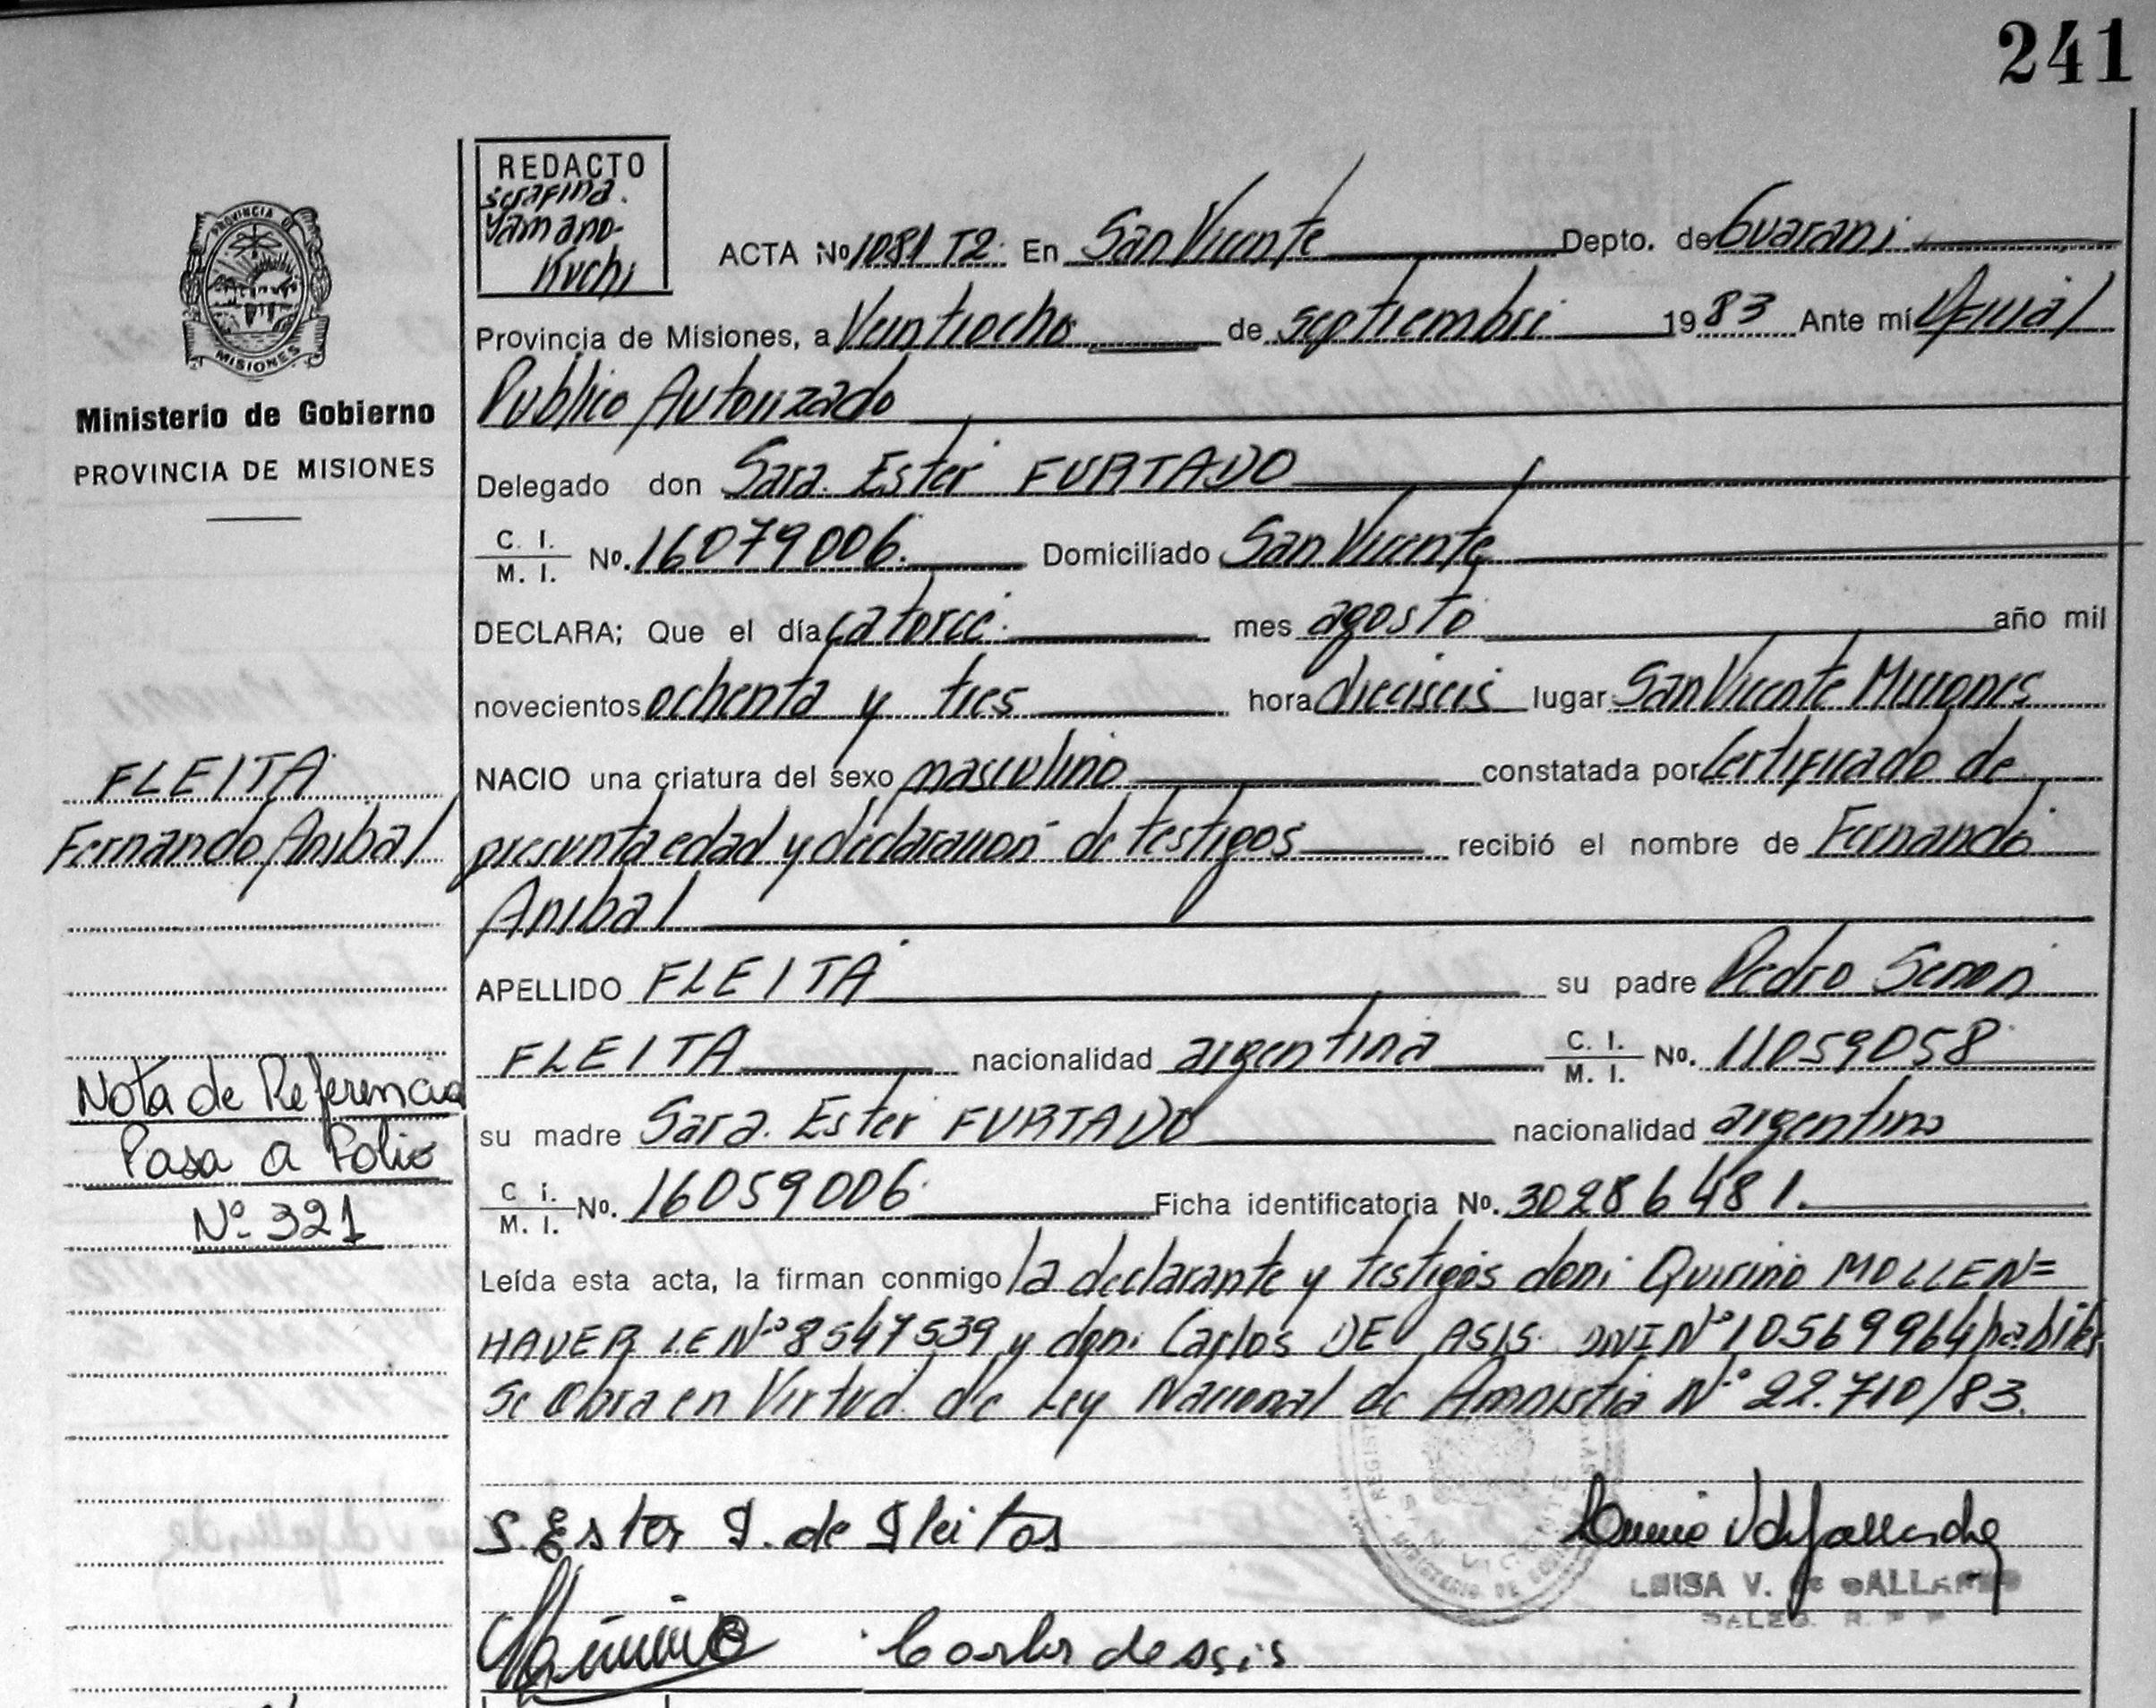 241
REDACTO
Serafina.
Yamano-
Kuchi
ACTA No 1081 T2. En San Vicente Depto. de Guarani
Provincia de Misiones, a Veintiocho de septiembre 1983 Ante mí Oficial
Publico Autorizado
PROVINCIA DE
MISIONES
Ministerio de Gobierno
PROVINCIA DE MISIONES
Delegado don Sara. Ester FURTADO
C. I.
M. I. No. 16079006. Domiciliado San Vicente
DECLARA; Que el día catorce. mes agosto año mil
novecientos ochenta y tres hora dieciseis lugar San Vicente Misiones
NACIO una criatura del sexo masculino constatada por Certificado de
presunta edad y declaracion de testigos recibió el nombre de Fernando
Anibal
FLEITA
Fernando Anibal
APELLIDO FLEITA su padre Pedro Senon
FLEITA nacionalidad argentina C. I.
M. I. No. 11059058
su madre Sara. Ester FURTADO nacionalidad argentina
C. I.
M. I. No. 16059006. Ficha identificatoria No. 30286481.
Nota de Referencia
Pasa a Folio
Nº 321
Leída esta acta, la firman conmigo la declarante y testigos don: Quirino MOLLEN=
HAUER LE Nº 8547539 y don: Carlos DE ASIS. DNI Nº 10569964 habiles
Se Obra en Virtud. de Ley Nacional de Amnistia Nº 22.710/83.
S. Ester F. de Fleitas
LUISA V. de GALLARDO
Carlos de asis
SAN VICENTE